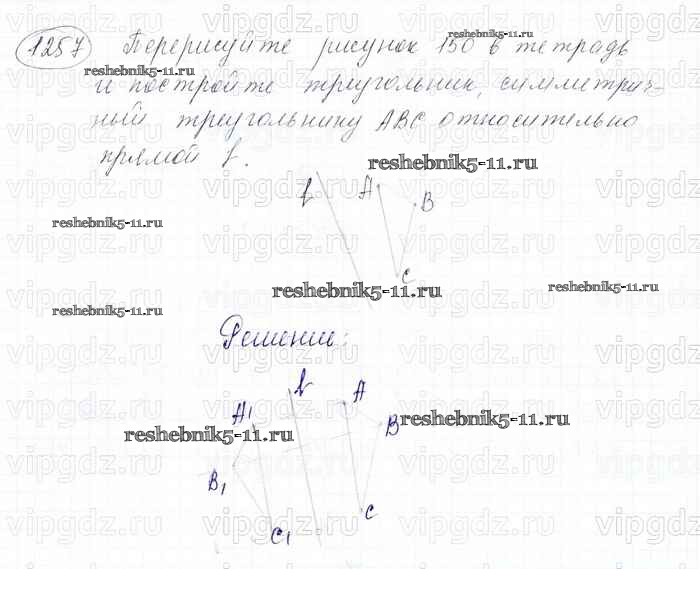 1257 Перерисуйте рисунок 150 в тетрадь
reshebnik5-11.ru
reshebnik5-11.ru
и постройте треугольник, симметрич-
ный треугольнику ABC относительно
прямой l.
reshebnik5-11.ru
l A B
reshebnik5-11.ru
C
reshebnik5-11.ru
reshebnik5-11.ru
reshebnik5-11.ru
Решение:
l A
A1 B
reshebnik5-11.ru
reshebnik5-11.ru
B1
C
C1
vipgdz.ru